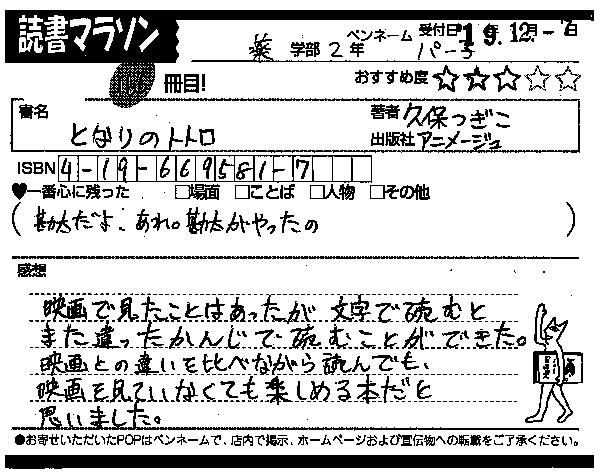 読書マラソン
薬 学部 2 年 ペンネーム パーチ 受付日 19.12月-7日
冊目!
おすすめ度 ☆☆☆☆☆
書名 となりのトトロ
著者 久保つぎこ
出版社 アニメージュ
ISBN 4-19-669581-7
♥一番心に残った □場面 □ことば □人物 □その他
(勘太だよ、あれ。勘太がやったの)
感想
映画で見たことはあったが 文字で読むと
また違ったかんじで読むことができた。
映画との違いを比べながら読んでも、
映画を見ていなくても楽しめる本だと
思いました。
●お寄せいただいたPOPはペンネームで、店内で掲示、ホームページおよび宣伝物への転載をご了承ください。